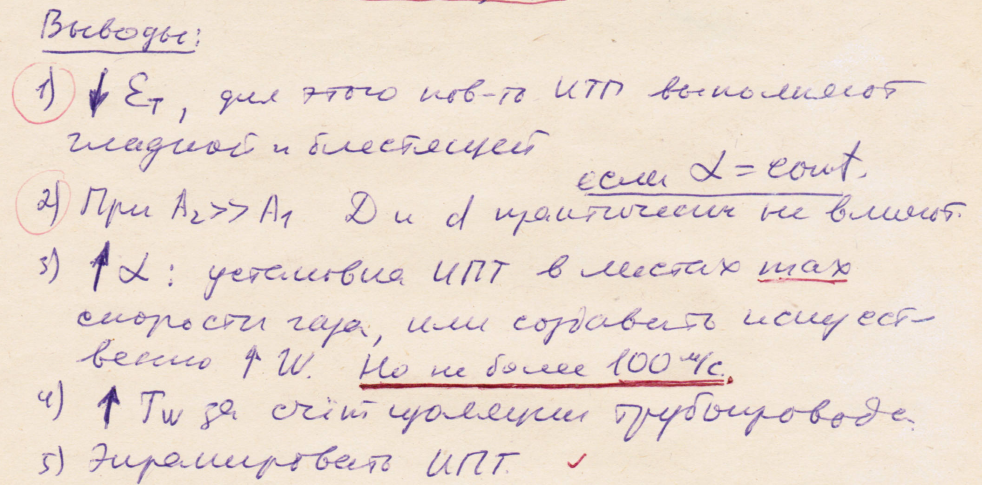 Выводы:
1) ↓ Ɛт, для этого пов-ть ИТП выполняют
гладкой и блестящей
если α = const.
2) При A₂>>A₁ D и d практически не влияют.
3) ↑ α: установка ИПТ в местах max
скорости газа, или создавать искуст-
венно ↑ W. Но не более 100 м/с.
4) ↑ Tw за счёт изоляции трубопровода.
5) Экранировать ИПТ.